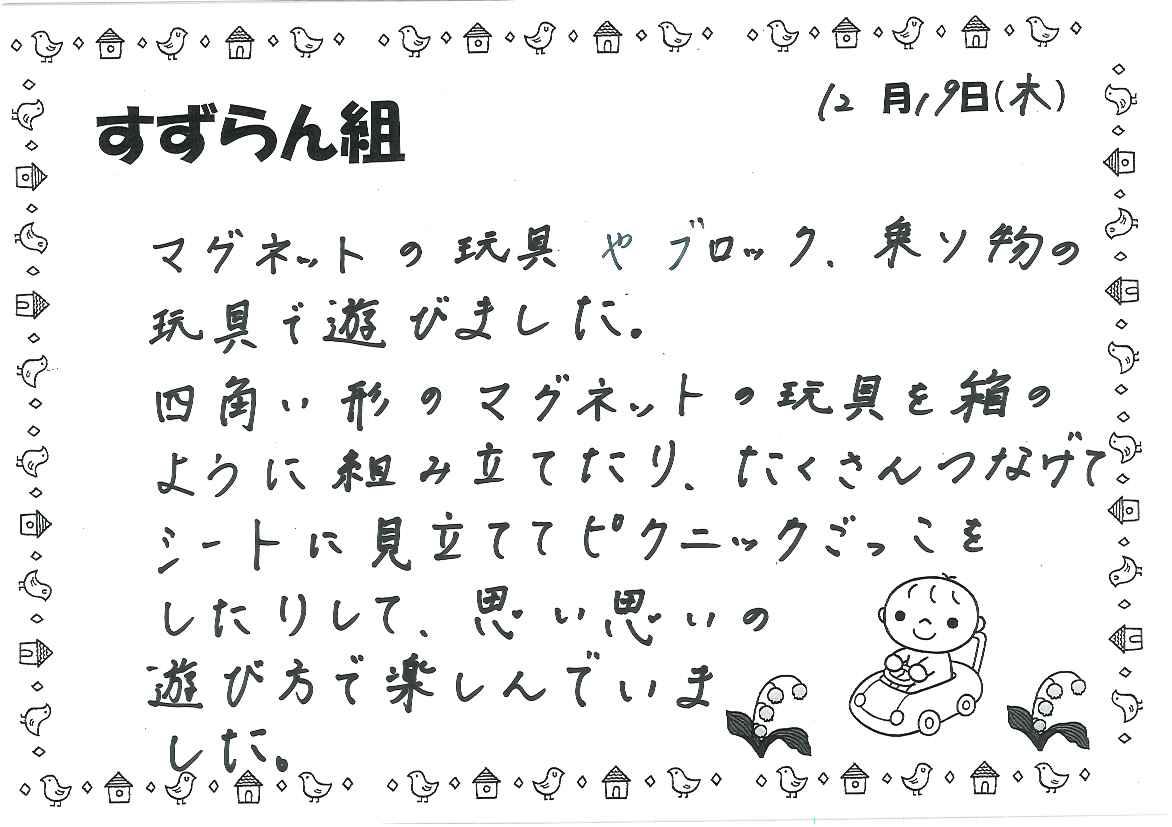 12月19日(木)
すずらん組
マグネットの玩具やブロック、乗り物の
玩具で遊びました。
四角い形のマグネットの玩具を箱の
ように組み立てたり、たくさんつなげて
シートに見立ててピクニックごっこを
したりして、思い思いの
遊び方で楽しんでいま
した。